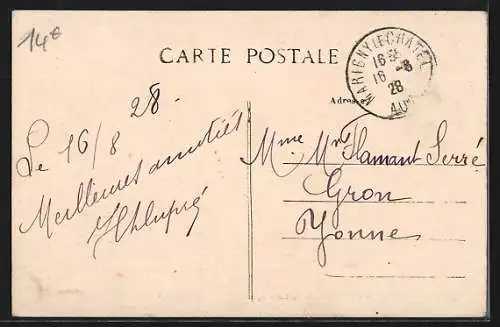 14€
CARTE POSTALE
MARIGNY-LE-CHATEL
16 H
16 -8
28
AUBE
Adresse
28.
Le 16/8
Meilleures amitiés
Mme Flamant Serré
Gron
Yonne